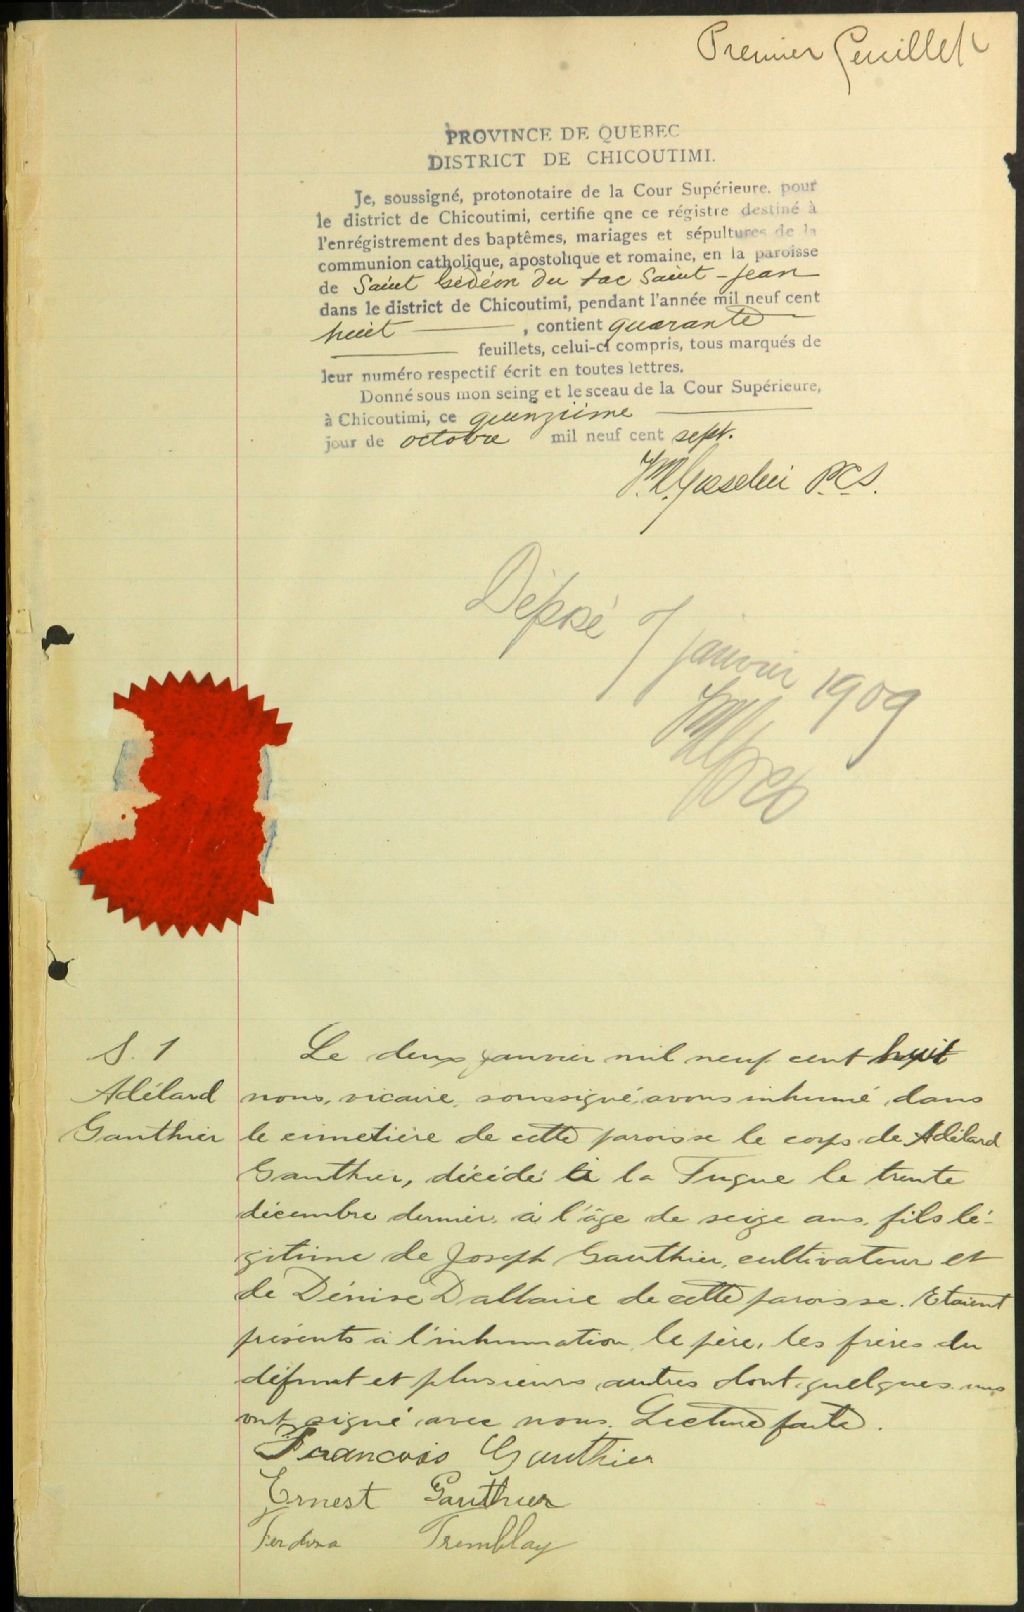 Premier feuillet
PROVINCE DE QUEBEC
DISTRICT DE CHICOUTIMI.
Je, soussigné, protonotaire de la Cour Supérieure, pour
le district de Chicoutimi, certifie qne ce régistre destiné à
l'enrégistrement des baptêmes, mariages et sépultures de la
communion catholique, apostolique et romaine, en la paroisse
de Saint Gédéon du Lac Saint-Jean
dans le district de Chicoutimi, pendant l'année mil neuf cent
huit ——, contient quarante ——
—— feuillets, celui-ci compris, tous marqués de
leur numéro respectif écrit en toutes lettres.
Donné sous mon seing et le sceau de la Cour Supérieure,
à Chicoutimi, ce quinzième ——
jour de octobre mil neuf cent sept.
Gosselin P.C.S.
Déposé 7 janvier 1909
S. 1
Adélard
Gauthier
Le deux janvier mil neuf cent huit
nous, vicaire, soussigné, avons inhumé, dans
le cimetière de cette paroisse le corps de Adélard
Gauthier, décédé à la Tuque le trente
décembre dernier, à l'âge de seize ans, fils lé-
gitime de Joseph Gauthier, cultivateur et
de Dénise Dallaire de cette paroisse. Etaient
présents à l'inhumation, le père, les frères du
défunt et plusieurs autres dont quelques uns
ont signé avec nous. Lecture faite.
Francois Gauthier
Ernest Gauthier
Tremblay